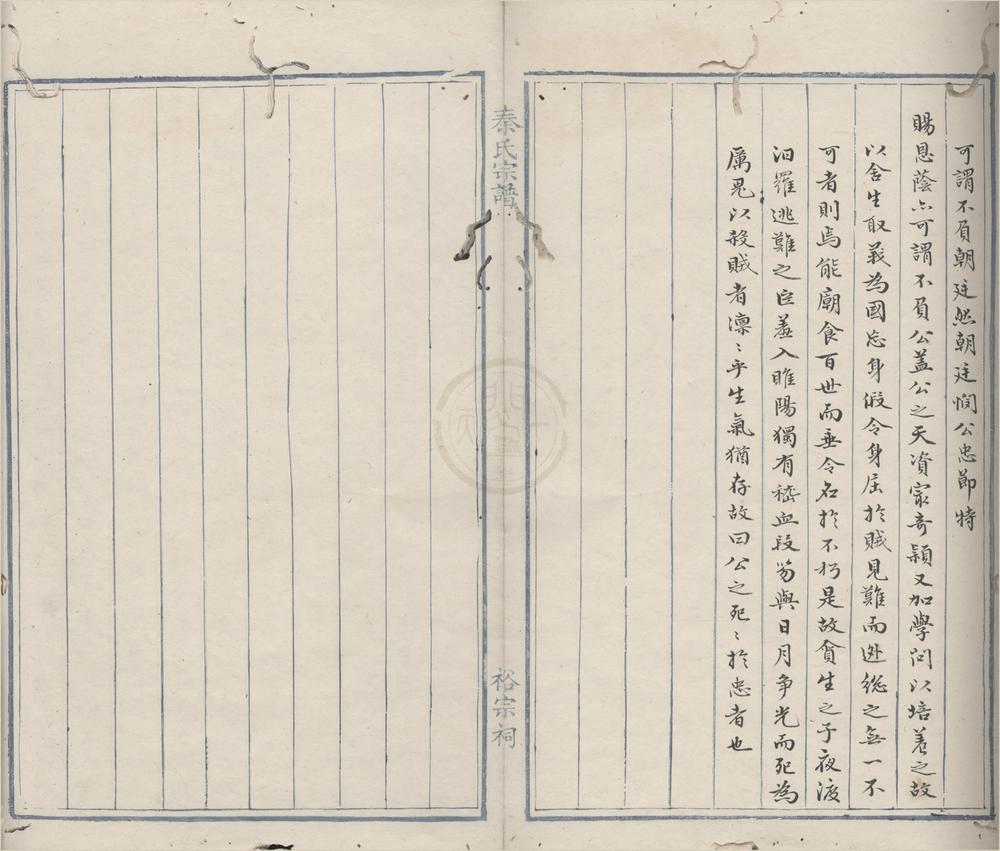 可謂不負朝廷然朝廷憫公忠節特
賜恩蔭亦可謂不負公盖公之天資最奇穎又加學問以培養之故
以舍生取義為國忘身假令身屈於賊見難而逃縱之無一不
可者則焉能廟食百世而垂令名於不朽是故貪生之子夜渡
汨羅逃難之臣羞入睢陽獨有嵇血段笏與日月争光而死為
厲鬼以殺賊者凛〻乎生氣猶存故曰公之死〻於忠者也
秦氏宗譜
裕宗祠